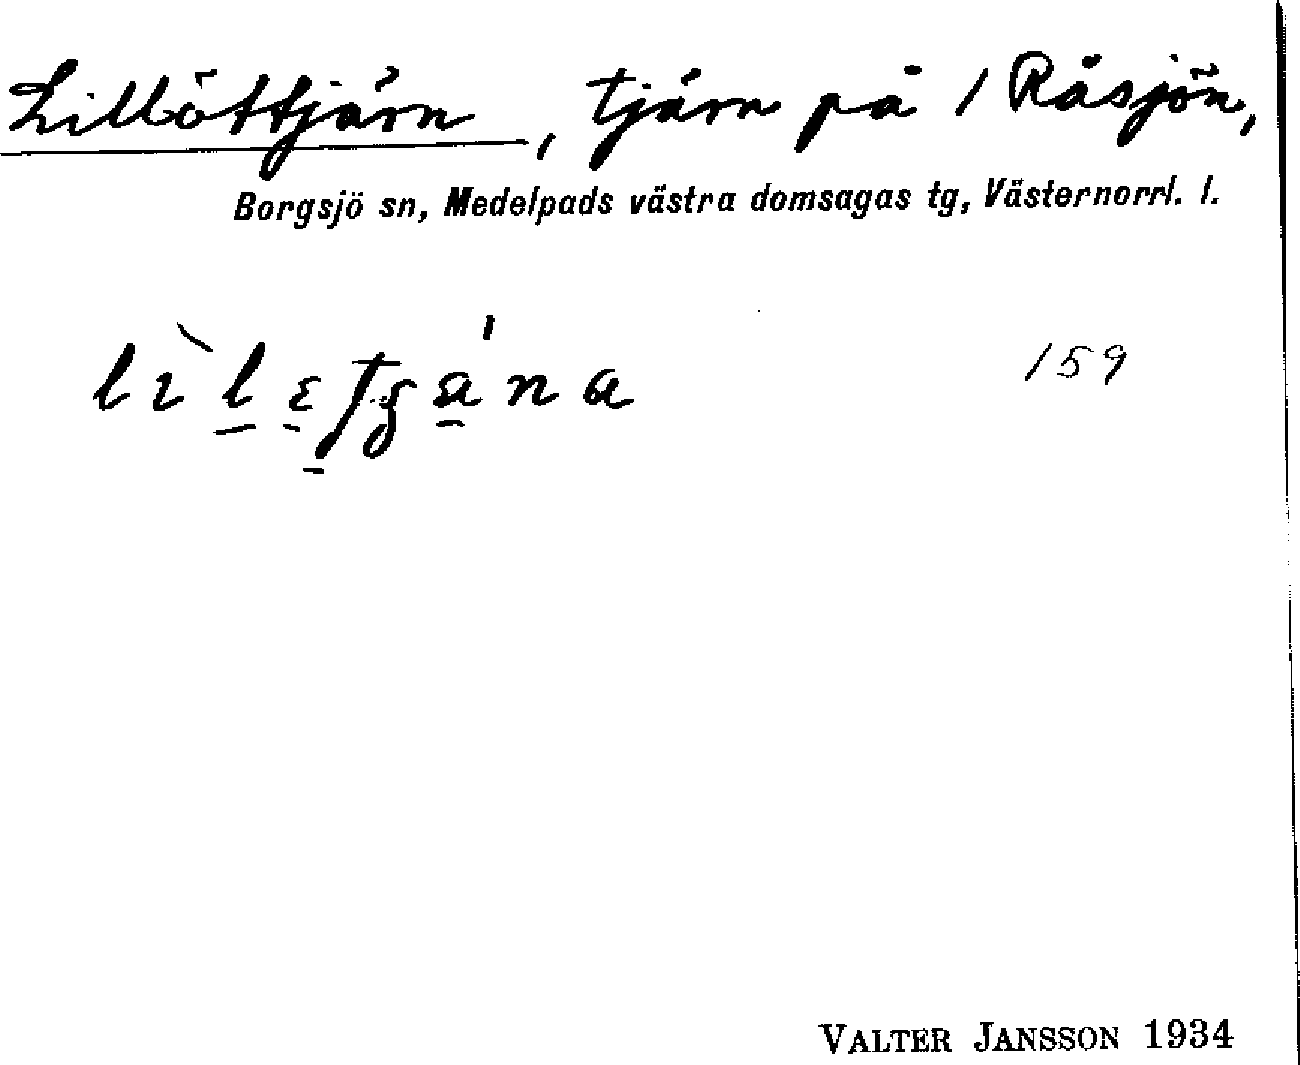 Lillöttjärn, tjärn på 1 Råsjön,
Borgsjö sn, Medelpads västra domsagas tg, Västernorrl. l.
159
VALTER JANSSON 1934